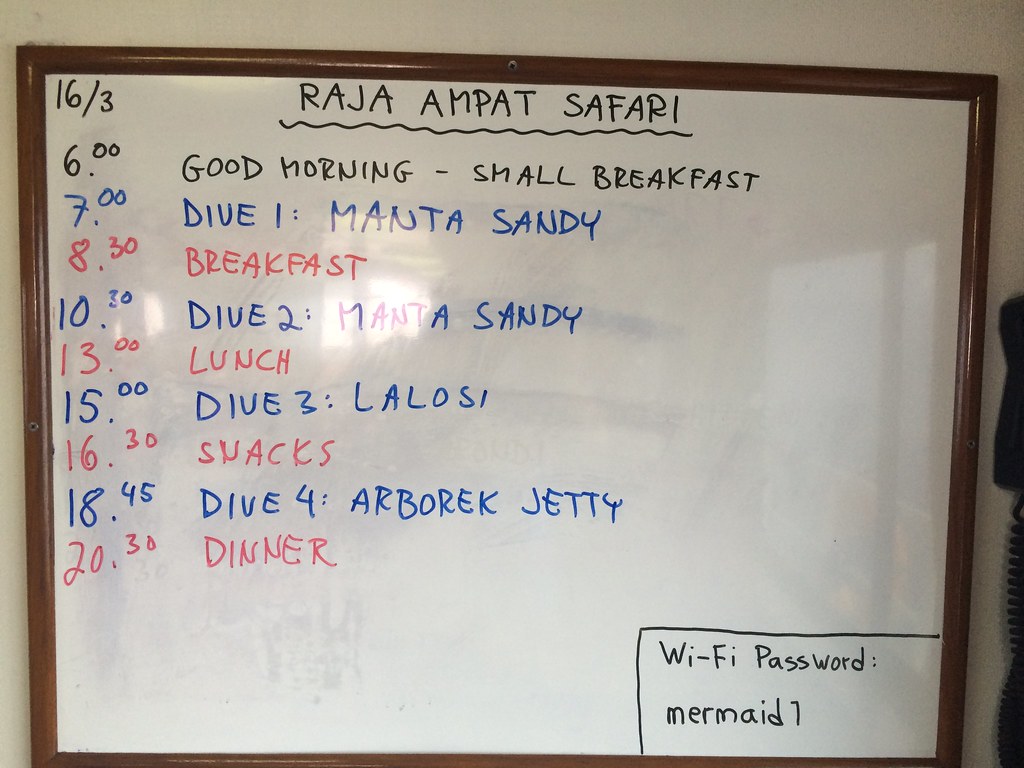 16/3 RAJA AMPAT SAFARI
6.00 GOOD MORNING - SMALL BREAKFAST
7.00 DIVE 1: MANTA SANDY
8.30 BREAKFAST
10.30 DIVE 2: MANTA SANDY
13.00 LUNCH
15.00 DIVE 3: LALOSI
16.30 SNACKS
18.45 DIVE 4: ARBOREK JETTY
20.30 DINNER
Wi-Fi Password:
mermaid1